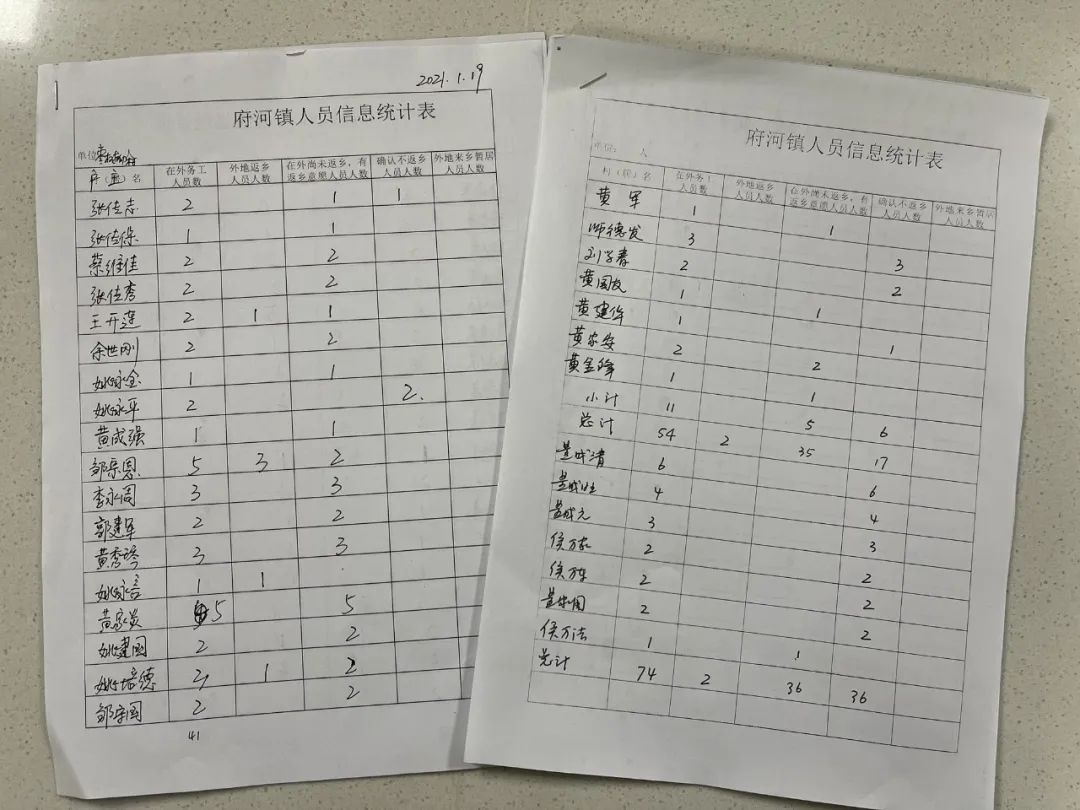 2021.1.19
府河镇人员信息统计表
单位
户（重）名 在外务工人员数 外地返乡人员人数 在外尚未返乡，有返乡意愿人员人数 确认不返乡人员人数 外地来乡暂居人员人数
张仕志 2 1 1
张仕保 1 1
蔡维佳 2 2
张仕秀 2 2
王开莲 2 1 1
余世刚 2 2
姚咏金 1 1
姚咏平 2 2.
黄成强 1 1
邹宗恩 5 3 2
李永周 3 3
郭建军 2 2
黄秀琴 3 3
姚咏言 1 1
黄家炎 5 5
姚建国 2 2
姚培德 2 1 2
邹宗国 2 2
41
府河镇人员信息统计表
单位： 人
村（居）名 在外务工人员数 外地返乡人员人数 在外尚未返乡，有返乡意愿人员人数 确认不返乡人员人数 外地来乡暂居人员人数
黄军 1 1
师德发 3 3
刘学春 2 2
黄国友 1 1
黄建华 1 1
黄家安 2 2
黄金峰 1 1
小计 11 5 6
总计 54 2 35 17
黄成清 6 6
黄成旺 4 4
黄成元 3 3
侯万家 2 2
侯万 2 2
2 2
侯万法 1 1
总计 74 2 36 36